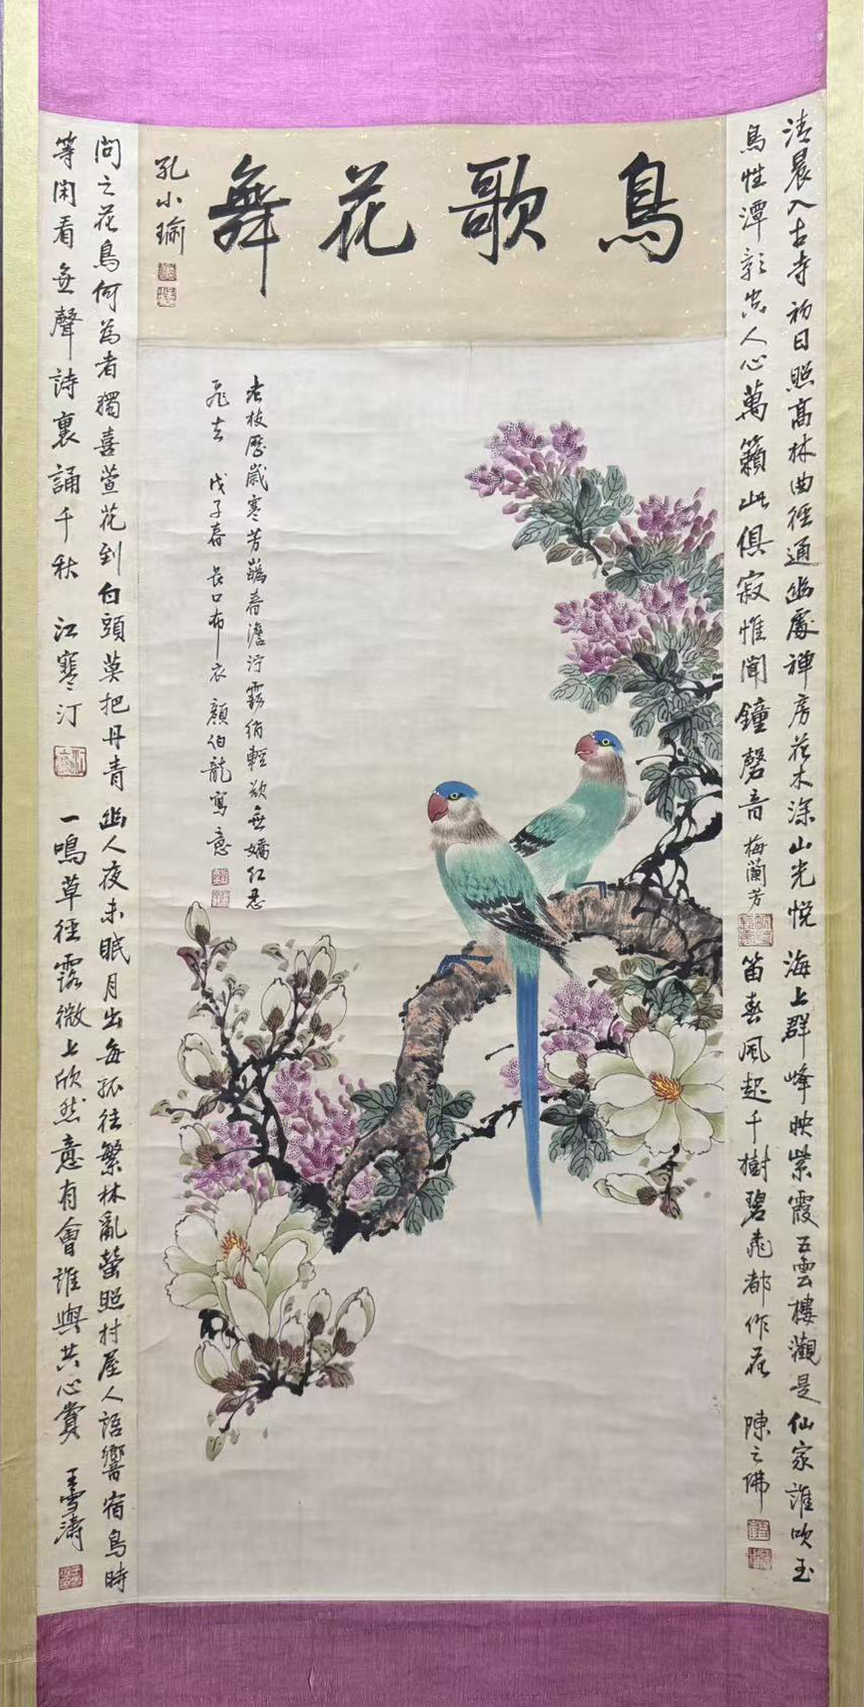 鳥歌花舞
孔小瑜
清晨入古寺初日照高林曲徑通幽處禪房花木深山光悅
鳥性潭影空人心萬籟此俱寂惟聞鐘磬音 梅蘭芳
海上群峰映紫霞五雲樓觀是仙家誰吹玉
笛春風起千樹碧桃都作花 陳之佛
老枝歷歲寒芳蘤春澹濘霧綃輕欲無嬌紅忍
飛去 戊子春 長口布衣 顏伯龍寫意
問之花鳥何為者獨喜萱花到白頭莫把丹青
等閑看無聲詩裏誦千秋 江寒汀
幽人夜未眠月出每孤往繁林亂螢照村屋人語響宿鳥時
一鳴草徑露微上欣然意有會誰與共心賞 王雪濤